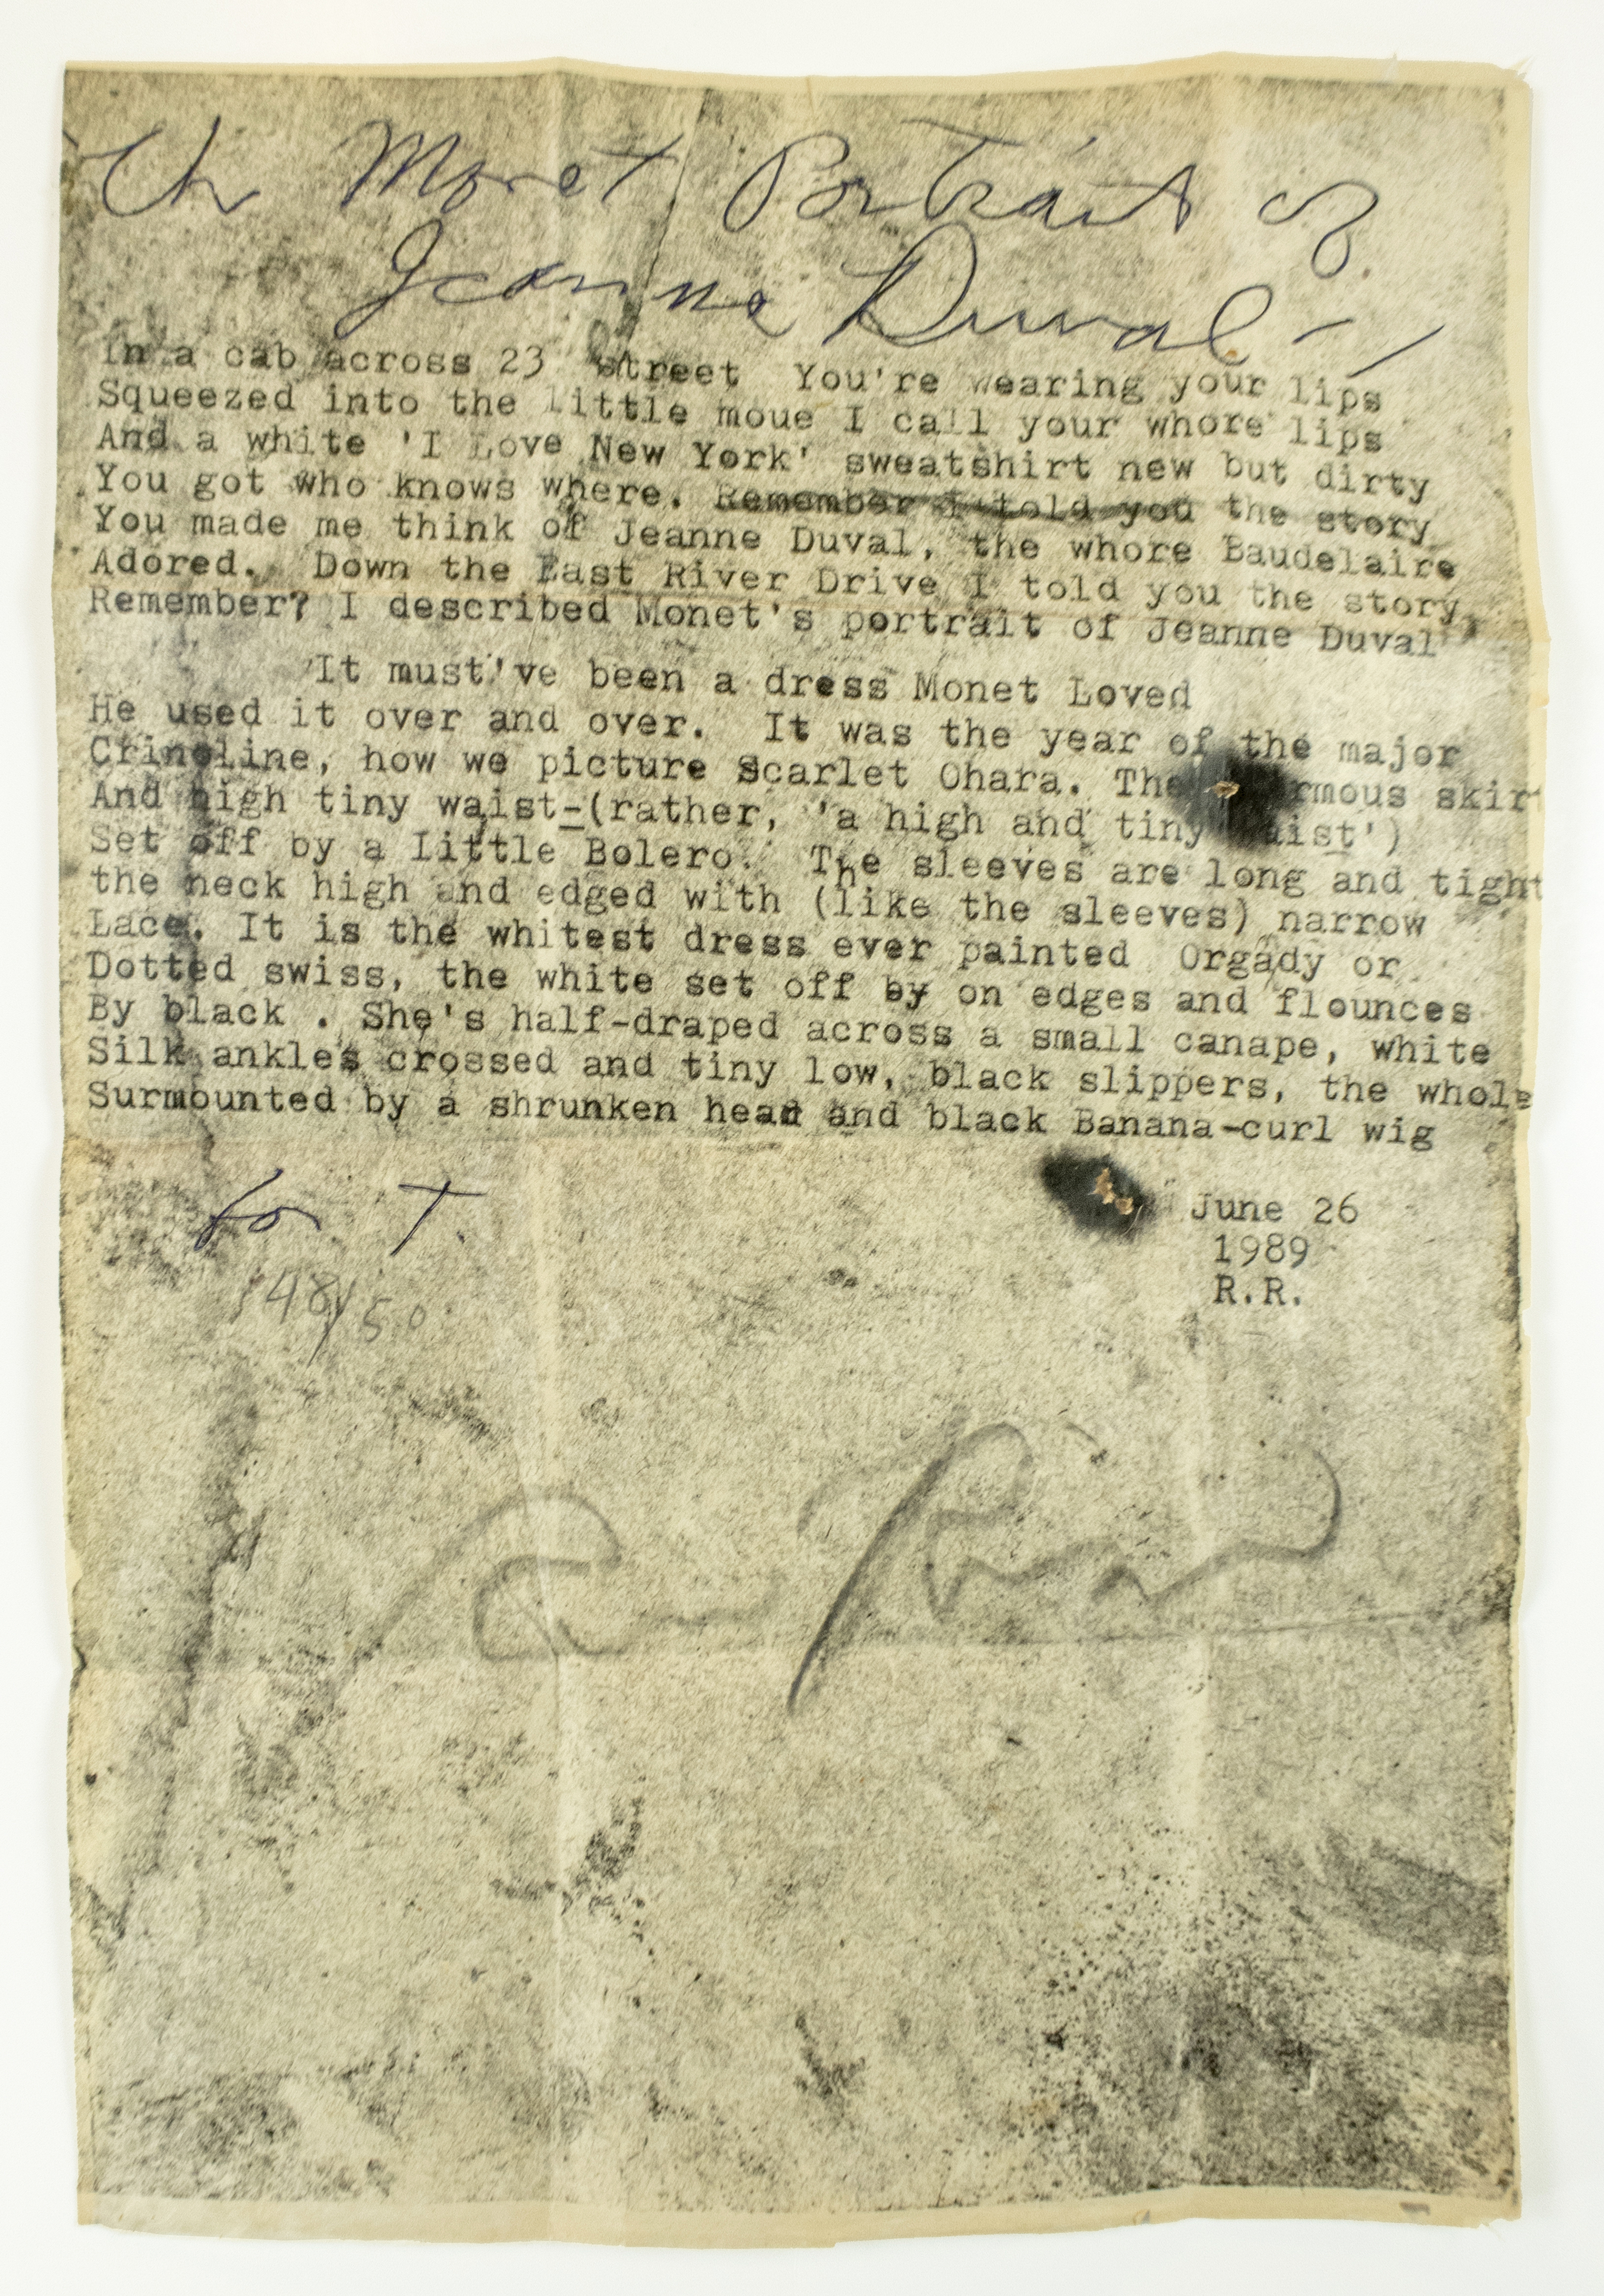 The Monet Portrait of
Jeanne Duval -
In a cab across 23 street You're wearing your lips
Squeezed into the little moue I call your whore lips
And a white 'I Love New York' sweatshirt new but dirty
You got who knows where. Remember I told you the story
You made me think of Jeanne Duval, the whore Baudelaire
Adored. Down the East River Drive I told you the story
Remember? I described Monet's portrait of Jeanne Duval
It must've been a dress Monet Loved
He used it over and over. It was the year of the major
Crinoline, how we picture Scarlet Ohara. The rmous skirt
And high tiny waist-(rather, 'a high and tiny aist')
Set off by a Little Bolero. The sleeves are long and tight
the neck high and edged with (like the sleeves) narrow
Lace. It is the whitest dress ever painted Orgady or
Dotted swiss, the white set off by on edges and flounces
By black . She's half-draped across a small canape, white
Silk ankles crossed and tiny low, black slippers, the whole
Surmounted by a shrunken head and black Banana-curl wig
for T.
June 26
1989
R.R.
48/50